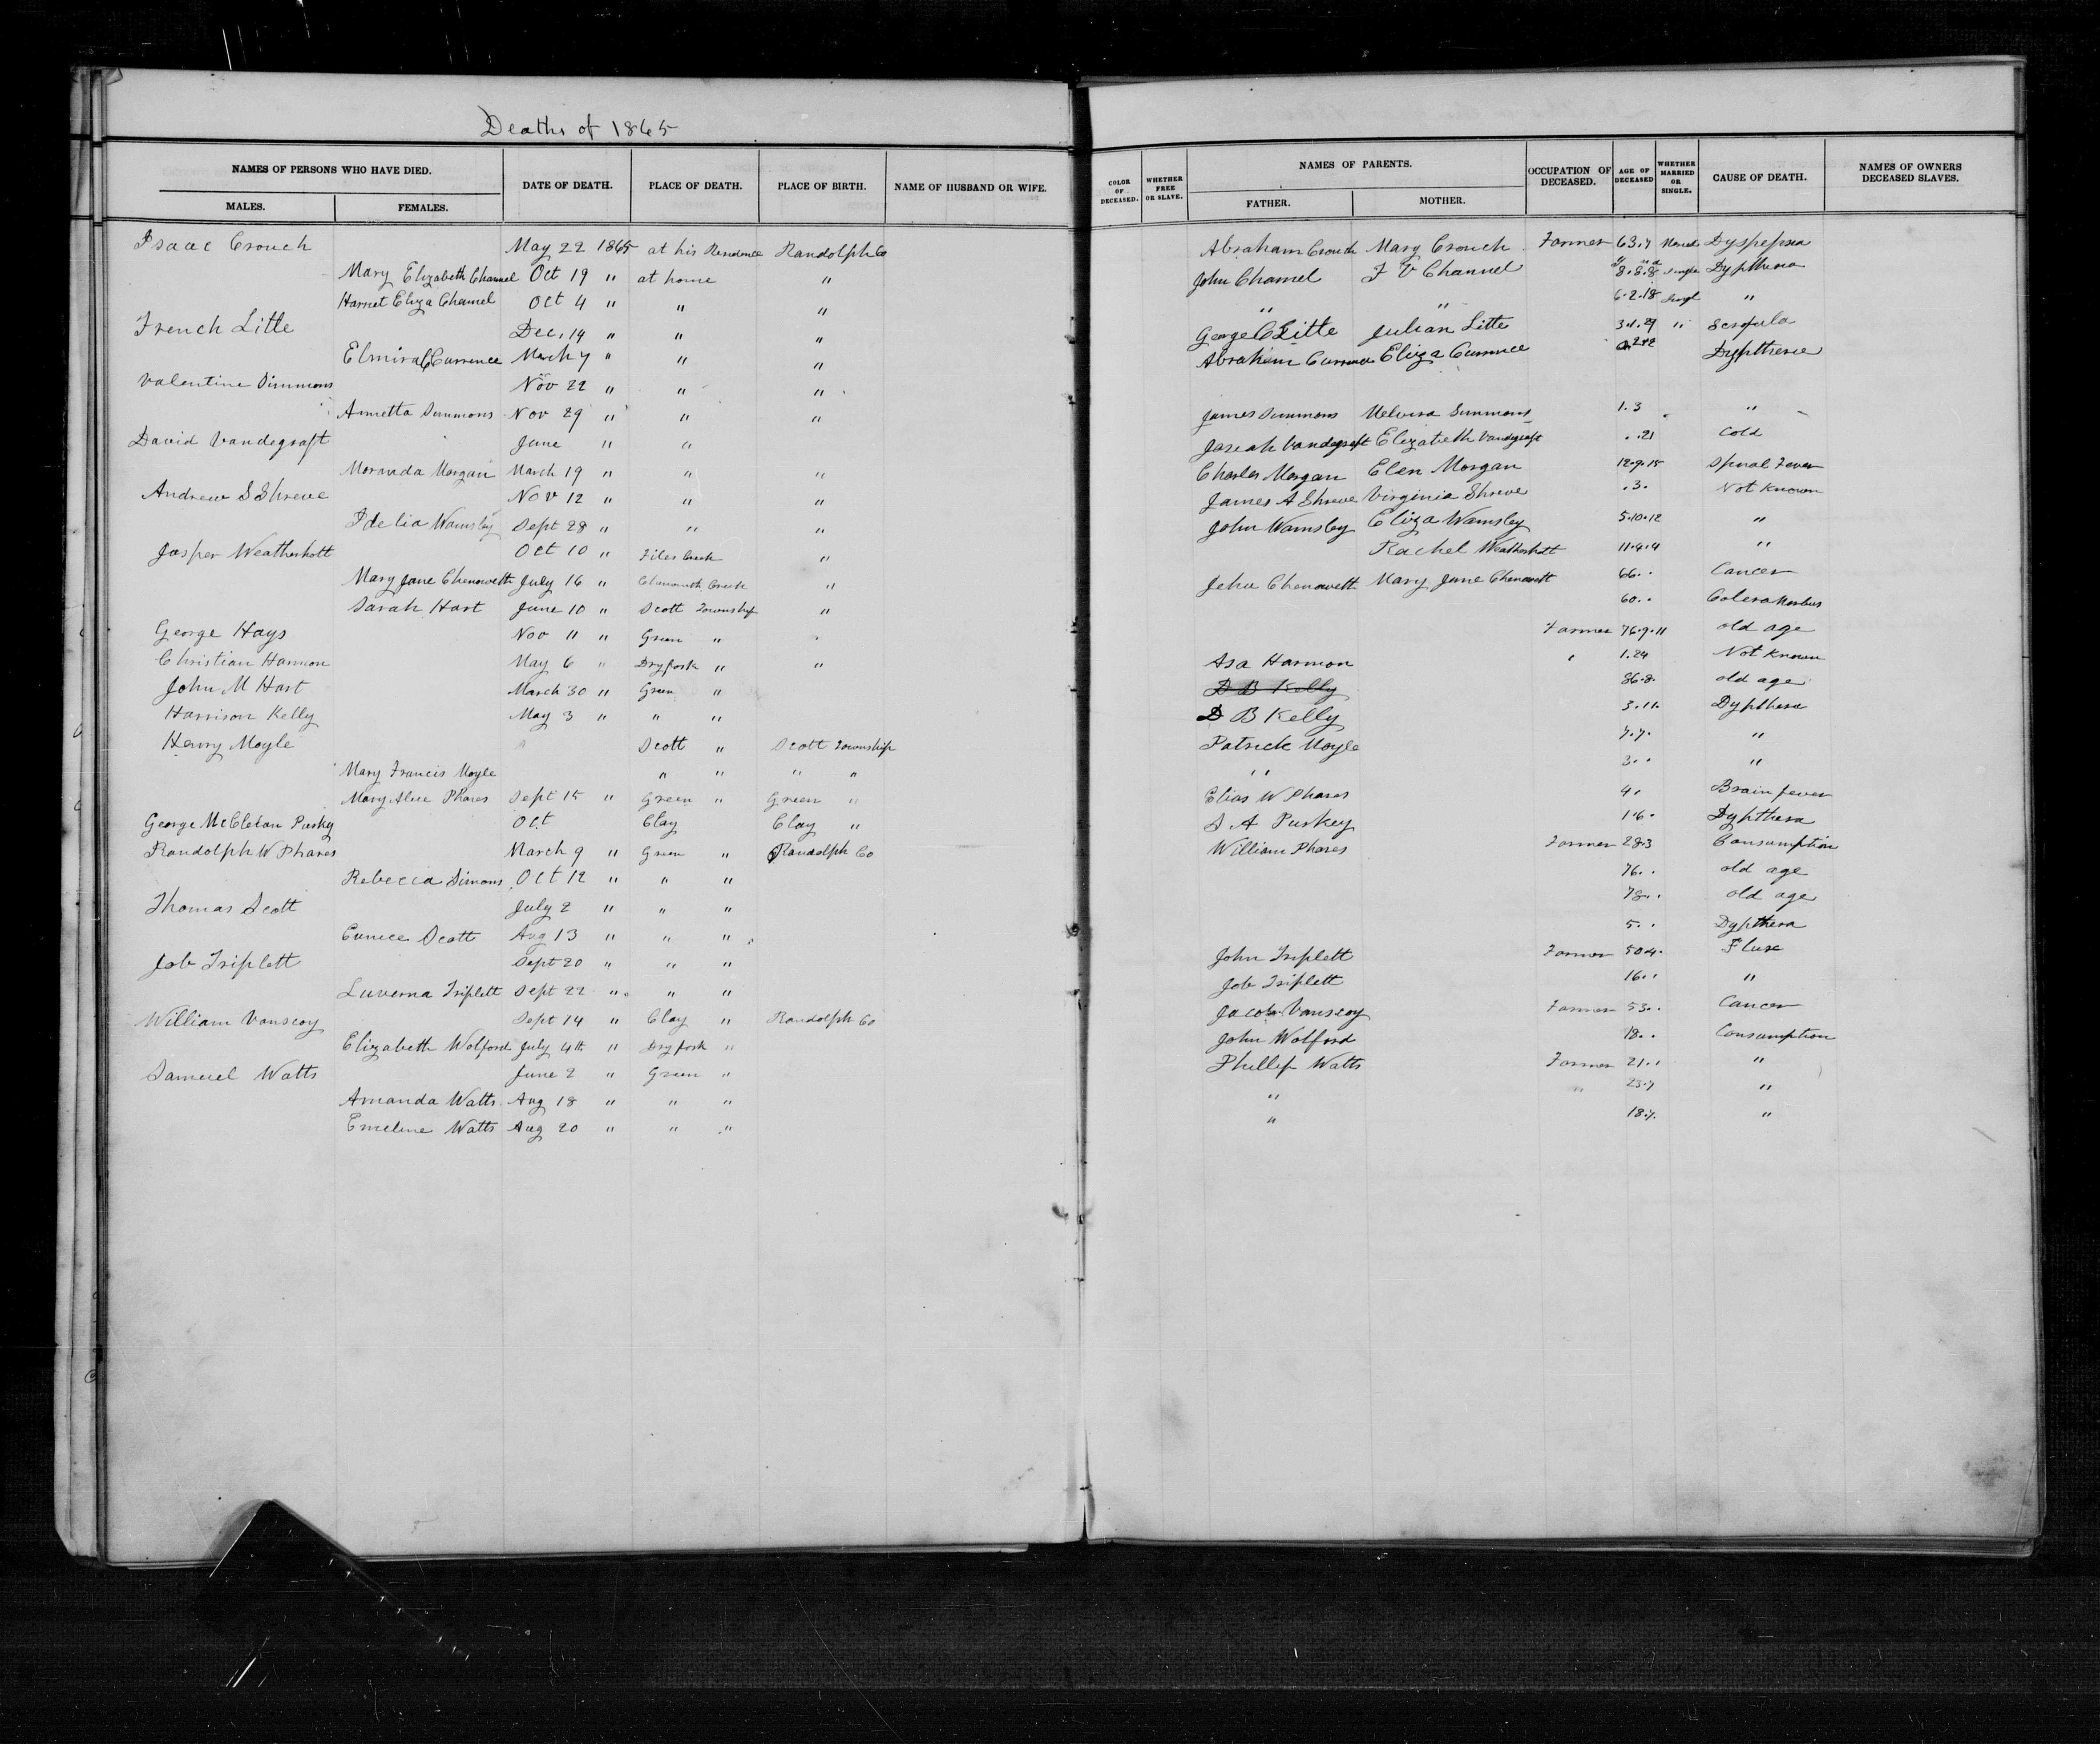 Deaths of 1865
NAMES OF PERSONS WHO HAVE DIED. DATE OF DEATH. PLACE OF DEATH. PLACE OF BIRTH. NAME OF HUSBAND OR WIFE. COLOR OF DECEASED. WHETHER FREE OR SLAVE. NAMES OF PARENTS. OCCUPATION OF DECEASED. AGE OF DECEASED WHETHER MARRIED OR SINGLE. CAUSE OF DEATH. NAMES OF OWNERS DECEASED SLAVES.
MALES. FEMALES. FATHER. MOTHER.
Isaac Crouch May 22 1865 at his Residence Randolph Co Abraham Crouch Mary Crouch Farmer 63.7 Dyspepsia
Mary Elizabeth Channel Oct 19 " at home " John Channel F V Channel 8.8.8 single Dyptheria
Harriet Eliza Channel Oct 4 " " " " " 6.2.18 Singl "
French Litte Dec. 14 " " " George C Litte Julian Litte " Scrofula
Elmira C Currence March 7 " " " Abraham Currence Eliza Currence Dyptheria
Valentine Simmons Nov 22 " " "
Annetta Simmons Nov 29 " " " James Simmons Melvina Simmons 1.3 "
David Vandegraft June " " Joseah Vandegraft Elizabeth Vandegraft . .21 Cold
Moranda Morgan March 19 " " " Charles Morgan Elen Morgan 12.9.15 Spinal Fever
Andrew S Shreve Nov 12 " " " James A Shreve Virginia Shreve .3. Not Known
Idelia Wamsley Sept 28 " " " John Wamsley Eliza Wamsley 5.10.12 "
Jasper Weatherholt Oct 10 " Files Creek " Rachel Weatherholt 11.4.4 "
Mary Jane Chenowetth July 16 " Chenoweth Creek " Jehu Chenowett Mary Jane Chenowett 66.. Cancer
Sarah Hart June 10 " Scott Township " 60.. Colera Morbus
George Hays Nov 11 " Green " Farmer 76.9.11 old age
Christian Harmon May 6 " Dryfork " " Asa Harmon 1.24 Not Known
John M Hart March 30 " Green " D B Kelly 86.8. old age
Harrison Kelly May 3 " " " D B Kelly 3.11. Dypthera
Henry Moyle Scott " Scott Township Patrick Moyle 7.7. "
Mary Francis Moyle " " " " " 3.. "
Mary Alice Phares Sept 15 " Green " Green " Elias W Phares 4. Brain fever
George McCleland Puskey Oct Clay Clay " S A Puskey 1.6. Dypthera
Randolph W Phares March 9 " Green " Randolph Co William Phares Farmer 28.3 Consumption
Rebecca Simons Oct 12 " " " 76.. old age
Thomas Scott July 2 " " " 78.. old age
Eunice Scott Aug 13 " " " 5.. Dypthera
Job Triplett Sept 20 " " " John Triplett Farmer 50.4. Flux
Luverna Triplett Sept 22 " " " Job Triplett 16.. "
William Vanscoy Sept 14 " Clay " Randolph Co Jacob Vanscoy Farmer 53.. Cancer
Elizabeth Wolford July 4th " Dryfork " John Wolford 18.. Consumption
Samuel Watts June 2 " Green " Phillip Watts Farmer 21.. "
Amanda Watts Aug 18 " " " " " 23.7 "
Emeline Watts Aug 20 " " " " 18.7. "